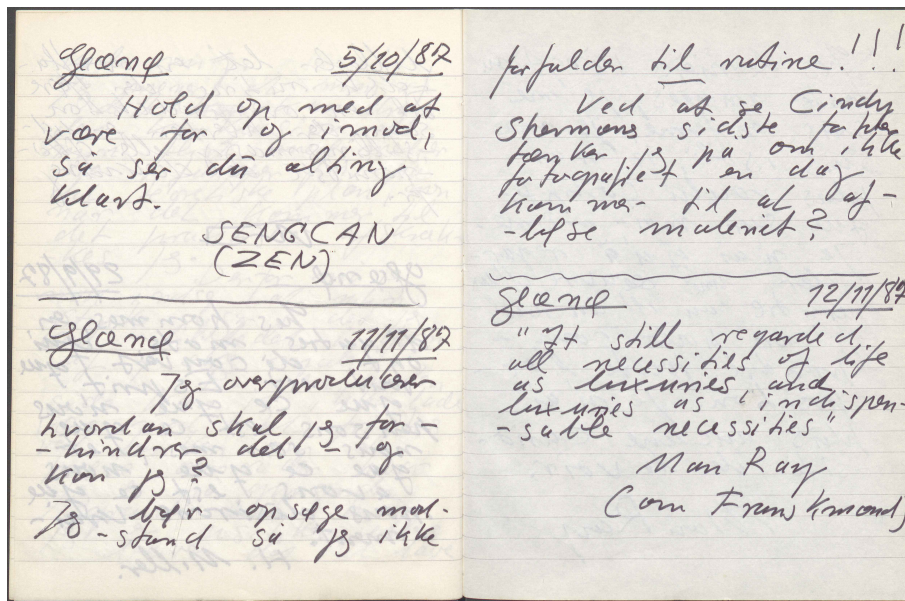 Gland 5/10/87
Hold op med at
være for og imod,
så ser du alting
klart.
SENGCAN
(ZEN)
Gland 11/11/87
Jeg overproducerer
hvordan skal jeg for-
-hindrer det - og
kan jeg?
Jeg bør opsøge mod-
-stand så jeg ikke
forfalder til rutine!!!
Ved at se Cindy
Shermans sidste
tænker jeg på om ikke
fotografiet en dag
kommer til at af-
-løse maleriet?
Gland 12/11/87
"It still regarded
all necessities of life
as luxuries and
luxuries as "indispen-
-sable necessities"
Man Ray
(om Frankmand)